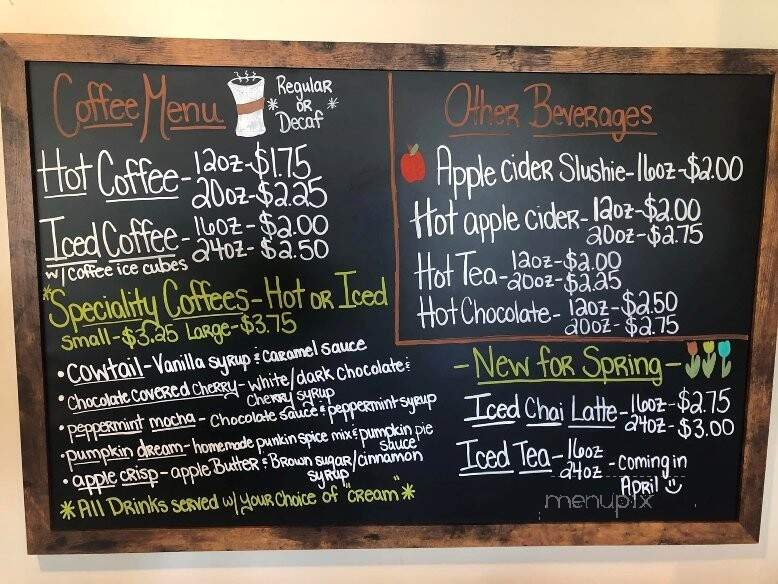 Coffee Menu
* Regular
OR *
Decaf
Hot Coffee - 12oz - $1.75
20oz - $2.25
Iced Coffee - 16oz - $2.00
w/ coffee ice cubes 24oz - $2.50
*Speciality Coffees - Hot OR Iced
Small - $3.25 Large - $3.75
• Cowtail - Vanilla syrup & caramel sauce
• Chocolate covered Cherry - white/dark Chocolate &
Cherry syrup
• peppermint mocha - Chocolate sauce & peppermint syrup
• pumpkin dream - homemade punkin spice mix & pumpkin pie
sauce
• apple crisp - apple Butter & Brown sugar/cinnamon
syrup
* All Drinks served w/ your choice of "cream" *
Other Beverages
Apple cider Slushie - 16oz - $2.00
Hot apple cider - 12oz - $2.00
20oz - $2.75
Hot Tea - 12oz - $2.00
20oz - $2.25
Hot Chocolate - 12oz - $2.50
20oz - $2.75
- New for Spring -
Iced Chai Latte - 16oz - $2.75
24oz - $3.00
Iced Tea - 16oz
24oz - coming in
April
menupix